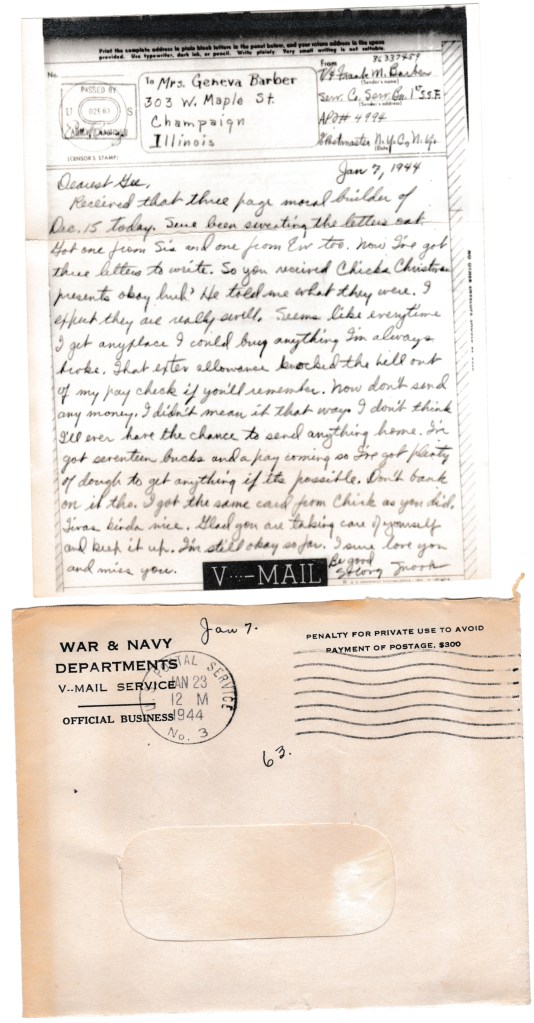 Print the complete address in plain block letters in the panel below, and your return address in the space
provided. Use typewriter, dark ink, or pencil. Write plainly. Very small writing is not suitable.
No.
PASSED BY
U S
(CENSOR'S STAMP)
To Mrs. Geneva Barber
303 W. Maple St.
Champaign
Illinois
From
36337459
Frank M. Barber
(Sender's name)
Serv. Co. Serv. Bn. 1st S.S.F.
(Sender's address)
APO# 4994
Postmaster N.Y.C., N.Y.
(Date)
Jan 7, 1944
Dearest Gee,
Received that three page moral builder of
Dec. 15 today. Sure been sweating the letters out.
Got one from Sis and one from Ev too. Now I've got
three letters to write. So you received Chicks Christmas
presents okay huh? He told me what they were. I
expect they are really swell. Seems like everytime
I get anyplace I could buy anything I'm always
broke. That exter allowance knocked the hell out
of my pay check if you'll remember. Now don't send
any money. I didn't mean it that way. I don't think
I'll ever have the chance to send anything home. I've
got seventeen bucks and a pay coming so I've got plenty
of dough to get anything if its possible. Don't bank
on it tho. I got the same card from Chick as you did.
Twas kinda nice. Glad you are taking care of yourself
and keep it up. I'm still okay so far. I sure love you
and miss you.
Be good
Strong Snook
V···-MAIL
Jan 7.
WAR & NAVY
DEPARTMENTS
V···MAIL SERVICE
OFFICIAL BUSINESS
POSTAL SERVICE
JAN 23
12 M
1944
No. 3
PENALTY FOR PRIVATE USE TO AVOID
PAYMENT OF POSTAGE, $300
63.